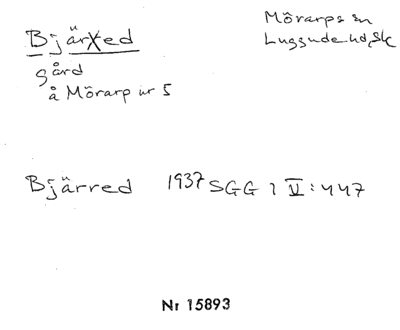 Bjärred
Mörarps sn
Luggude hd, Sk
gård
å Mörarp nr 5
Bjärred 1937 SGG 2 V: 447
Nr 15893